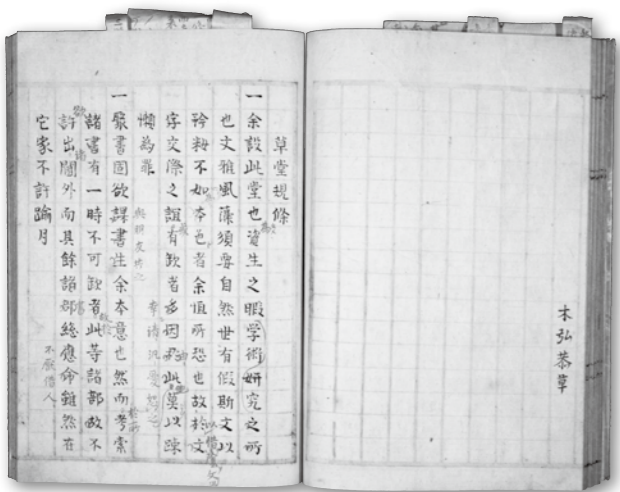 木弘恭草
草堂規條
一余設此堂也資生之暇学術妍究之所
也文雅風藻須要自然世有假斯文以
矜 不如本色者余恒所恐也故於文
字交際之誼有欽者多因 此莫以踈
幸請汎愛恕之
懶為罪
與朋友 之
一聚書固欲課書生余本意也然而考索
諸書有一時不可欽者此等諸部故不
許出閫外而其餘諸部總應命雖然在
不厭借人
它家不許踰月